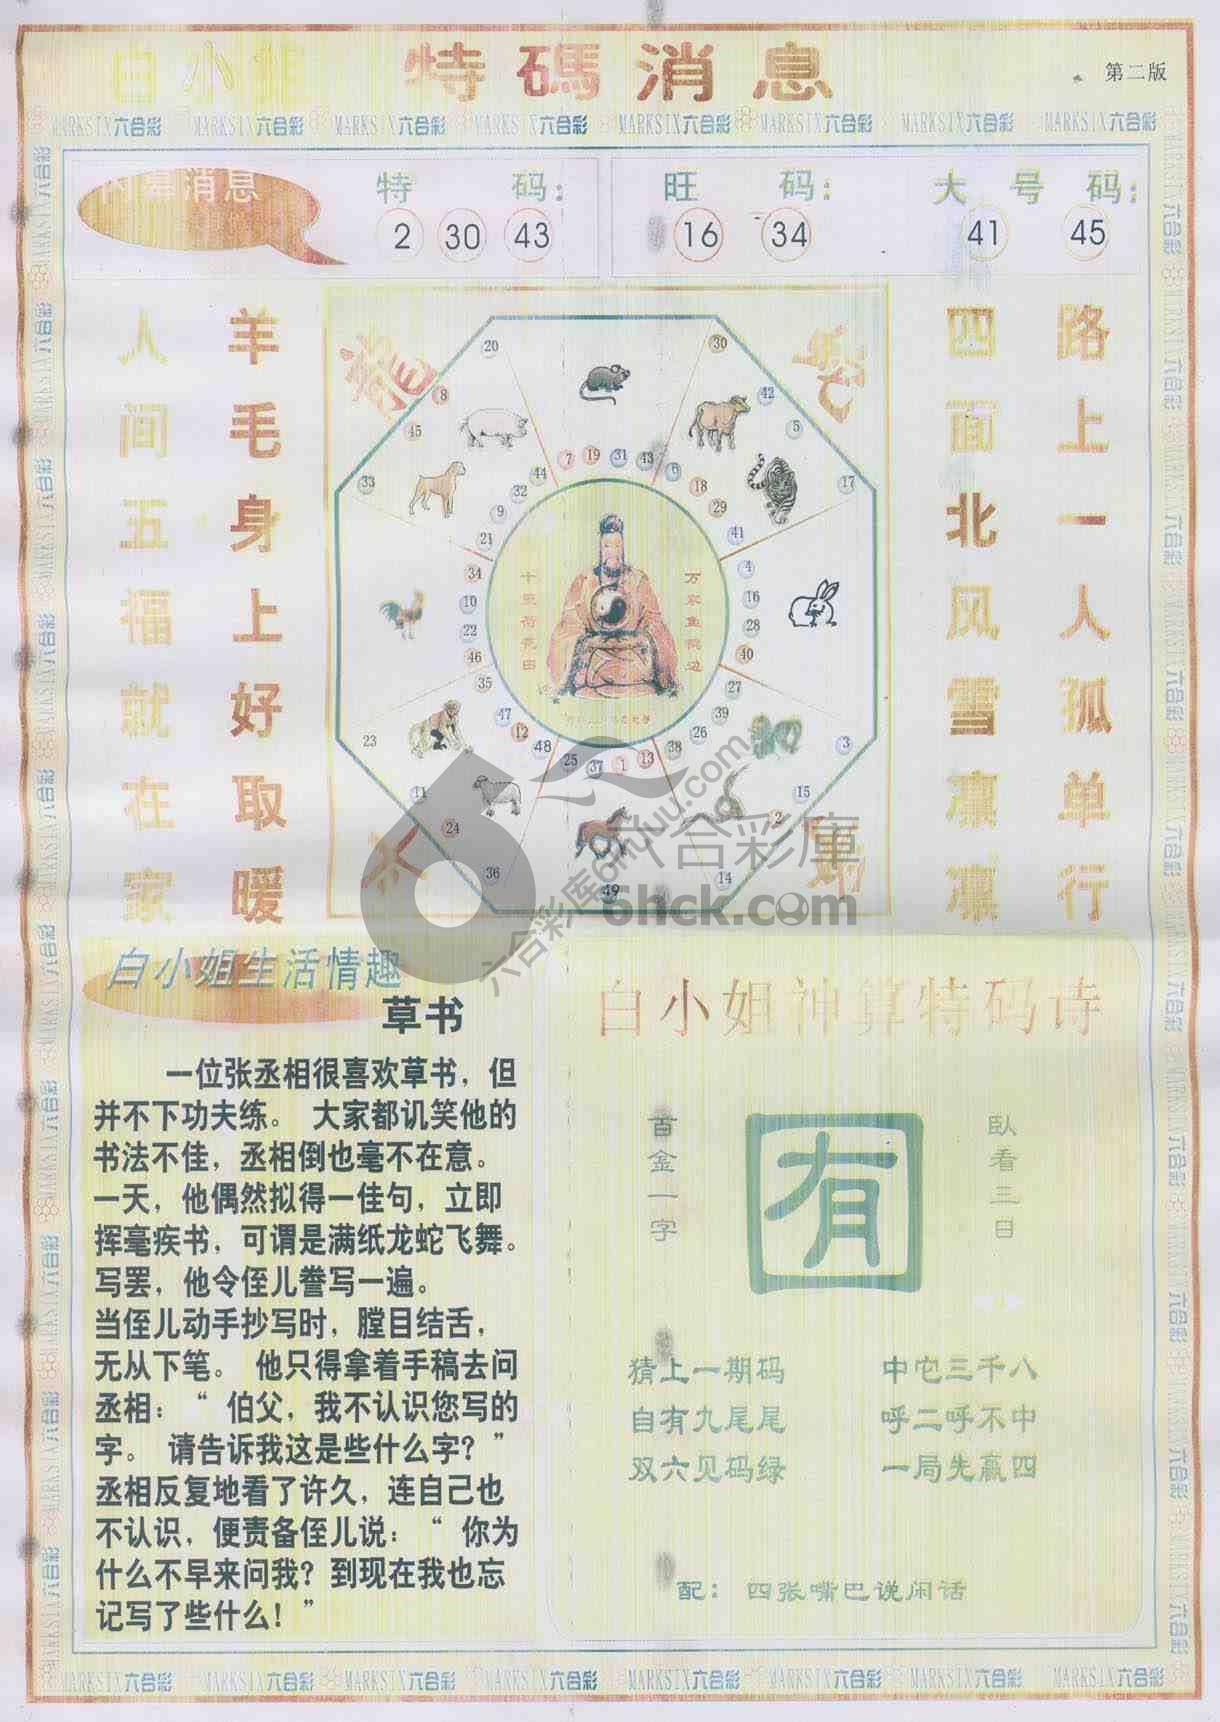 白小姐 特碼消息
第二版
MARKSIX六合彩 MARKSIX六合彩 MARKSIX六合彩 MARKSIX六合彩 MARKSIX六合彩 MARKSIX六合彩 MARKSIX六合彩 MARKSIX六合彩
内幕消息
特码：
2 30 43
旺码：
16 34
大号码：
41 45
路上一人孤单行
四面北风雪凛凛
羊毛身上好取暖
人间五福就在家
龍
蛇
20 30
8 42
45 5
33 17
7 19 31 43
6 18 29 41
4 16 28 40
27 39 3
26 38 15
2 14
1 13 25 37 49
48 12 24 36
47 35 23 11
34 10 22 46
21 9 32 44
万家鱼鸭边
十里荷花田
六合彩庫
6hck.com
六合彩库6hluu.com
白小姐生活情趣
草书
一位张丞相很喜欢草书，但
并不下功夫练。 大家都讥笑他的
书法不佳，丞相倒也毫不在意。
一天，他偶然拟得一佳句，立即
挥毫疾书，可谓是满纸龙蛇飞舞。
写罢，他令侄儿誊写一遍。
当侄儿动手抄写时，瞠目结舌，
无从下笔。 他只得拿着手稿去问
丞相：“ 伯父，我不认识您写的
字。 请告诉我这是些什么字？”
丞相反复地看了许久，连自己也
不认识，便责备侄儿说：“ 你为
什么不早来问我？到现在我也忘
记写了些什么！”
白小姐神算特码诗
卧看三日
有
百金一字
猜上一期码 中它三千八
自有九尾尾 呼二呼不中
双六见码绿 一局先赢四
配： 四张嘴巴说闲话
MARKSIX六合彩 MARKSIX六合彩 MARKSIX六合彩 MARKSIX六合彩 MARKSIX六合彩 MARKSIX六合彩 MARKSIX六合彩 MARKSIX六合彩